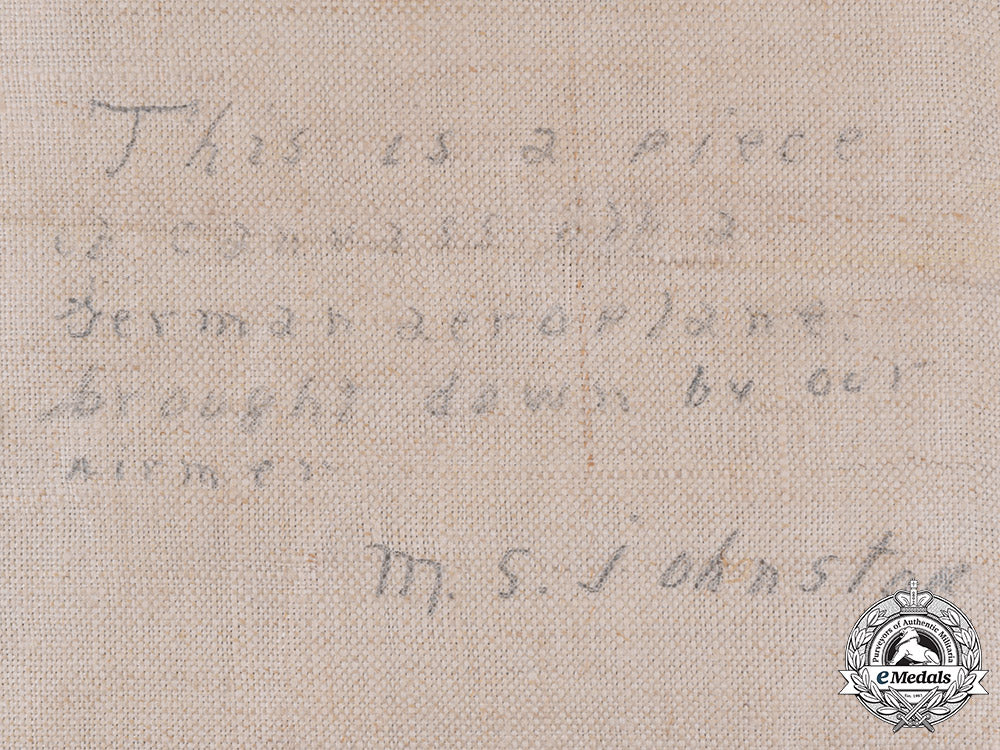 This is a piece
of canvass off a
German aeroplane
brought down by our
M. S. Johnston
Purveyors of Authentic Militaria
eMedals